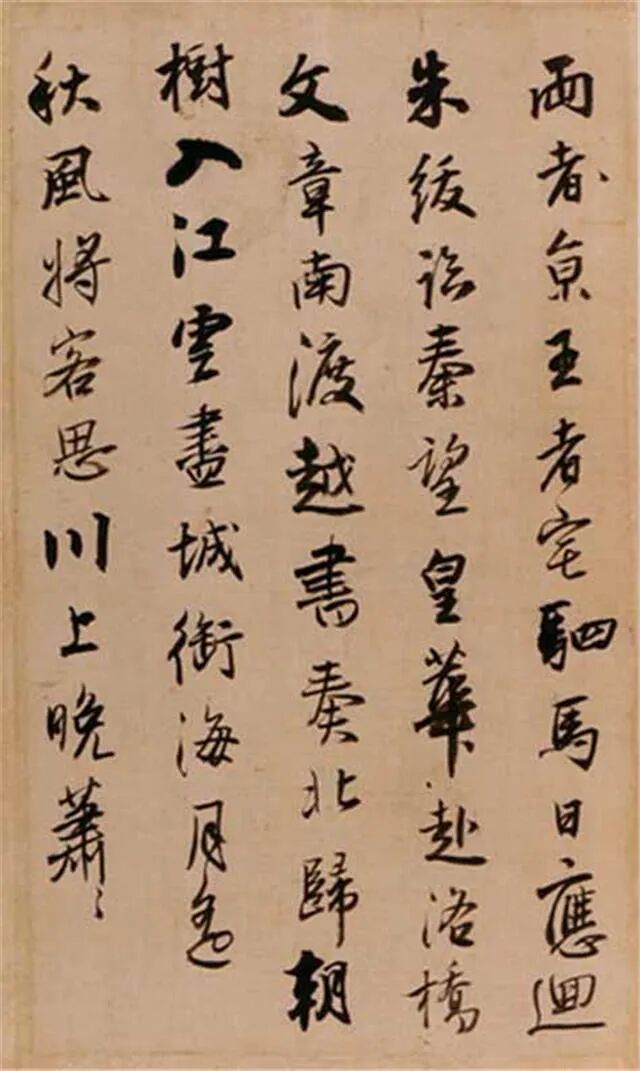 兩都京王者宅駟馬日應迴
朱紱臨秦望皇華赴洛橋
文章南渡越書奏北歸朝
樹入江雲盡城銜海月遙
秋風將客思川上晚蕭〻